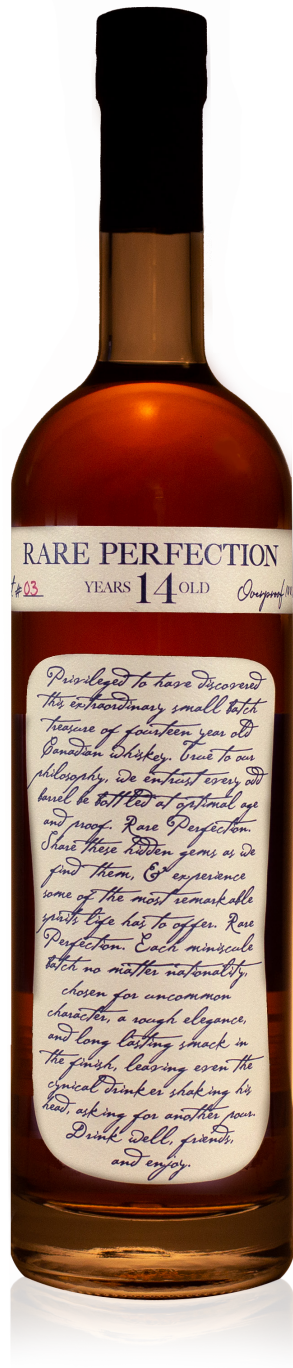 RARE PERFECTION
# 03 YEARS 14 OLD Overproof
Privileged to have discovered
this extraordinary small batch
treasure of fourteen year old
Canadian whiskey. True to our
philosophy, we entrust every odd
barrel be bottled at optimal age
and proof. Rare Perfection.
Share these hidden gems as we
find them, & experience
some of the most remarkable
spirits life has to offer. Rare
Perfection. Each miniscule
batch no matter nationality,
chosen for uncommon
character, a rough elegance,
and long lasting smack in
the finish, leaving even the
cynical drinker shaking his
head, asking for another pour.
Drink well, friends,
and enjoy.